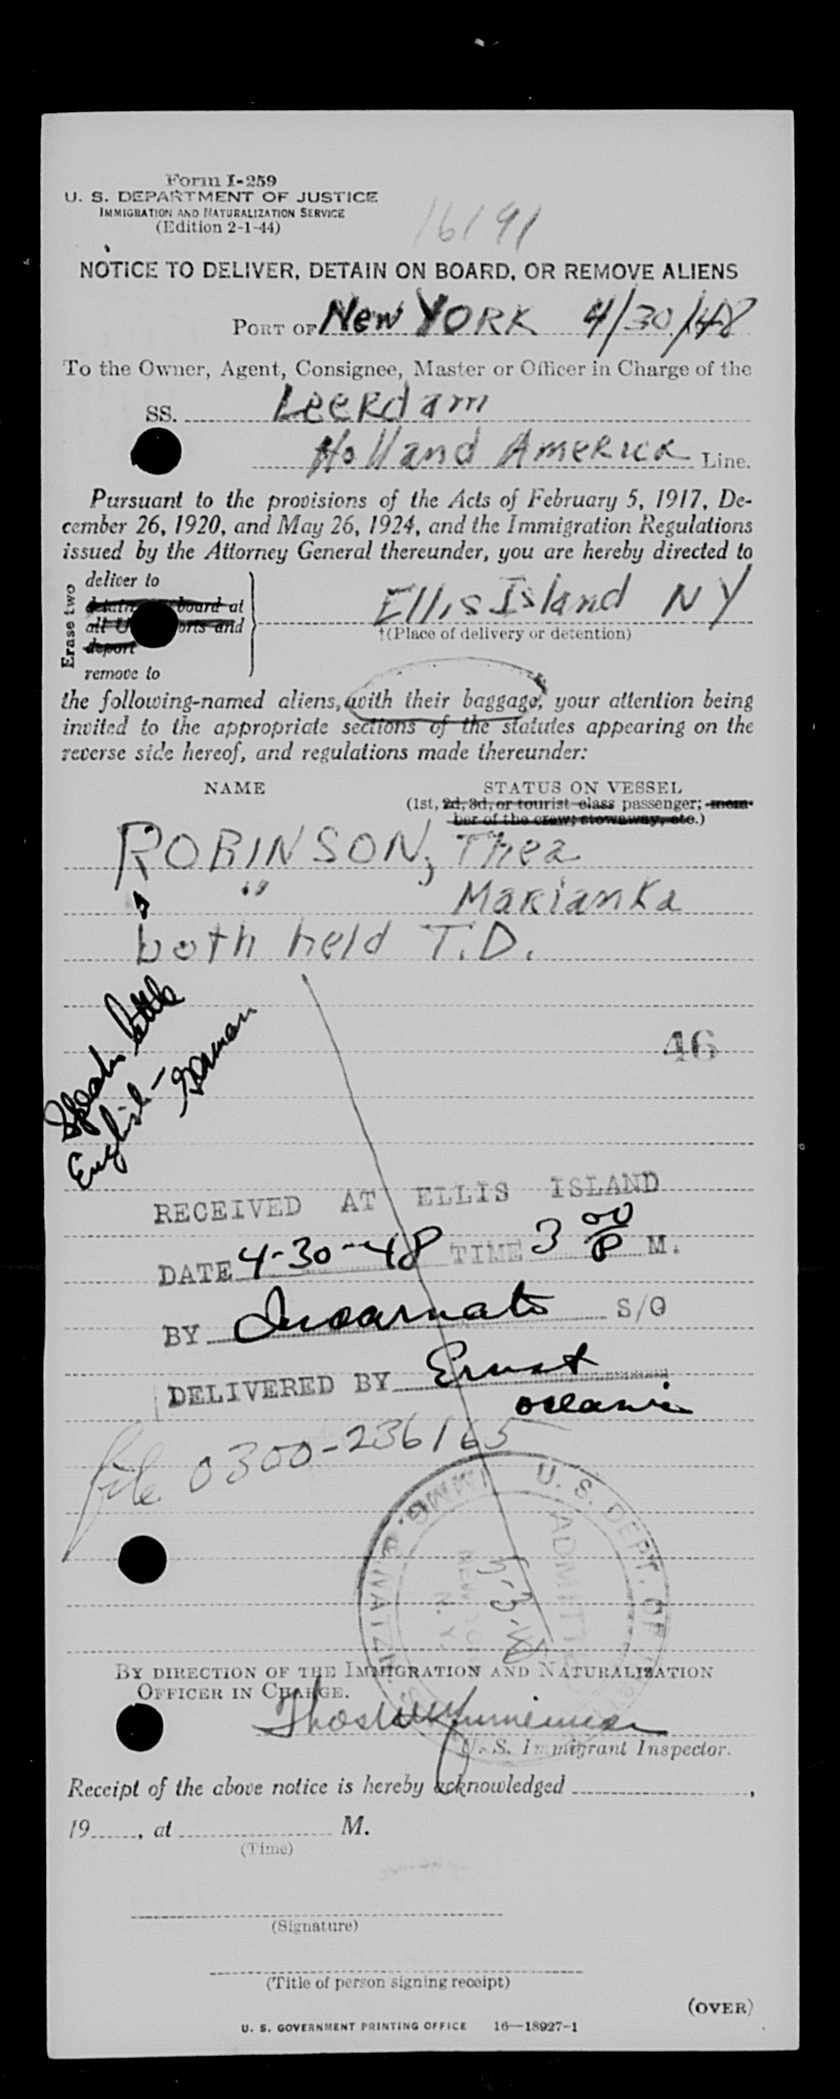 Form I-259
U. S. DEPARTMENT OF JUSTICE
IMMIGRATION AND NATURALIZATION SERVICE
(Edition 2-1-44)
16191
NOTICE TO DELIVER, DETAIN ON BOARD, OR REMOVE ALIENS
PORT OF New YORK 4/30/48
To the Owner, Agent, Consignee, Master or Officer in Charge of the
SS. Leerdam
Holland America Line.
Pursuant to the provisions of the Acts of February 5, 1917, De-
cember 26, 1920, and May 26, 1924, and the Immigration Regulations
issued by the Attorney General thereunder, you are hereby directed to
Erase two
deliver to
detain board at
all U orts and
deport
remove to
Ellis Island NY
†(Place of delivery or detention)
the following-named aliens, with their baggage, your attention being
invited to the appropriate sections of the statutes appearing on the
reverse side hereof, and regulations made thereunder:
NAME STATUS ON VESSEL
(1st, 2d, 3d, or tourist class passenger; mem-
ber of the crew; stowaway, etc.)
ROBINSON, Thea
" " Marianka
both held T.D.
Speak little
English - German
46
RECEIVED AT ELLIS ISLAND
DATE 4-30-48 TIME 3 00 P M.
BY S/O
DELIVERED BY Ernst
file 0300-236165
U. S. DEPT. OF
IMMIG.
ADMITTED
N. Y.
BY DIRECTION OF THE IMMIGRATION AND NATURALIZATION
OFFICER IN CHARGE.
U. S. Immigrant Inspector.
Receipt of the above notice is hereby acknowledged ,
19 , at M.
(Time)
(Signature)
(Title of person signing receipt)
(OVER)
U. S. GOVERNMENT PRINTING OFFICE 16—18927-1